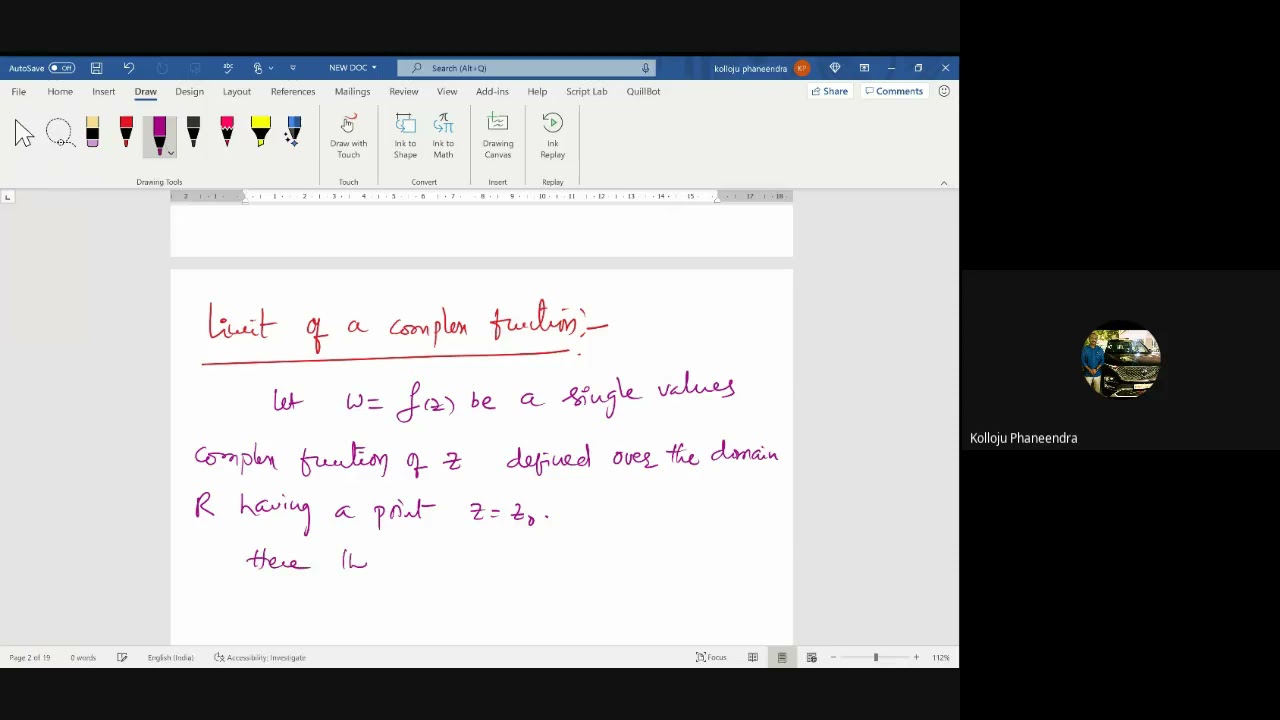 AutoSave Off NEW DOC Search (Alt+Q) kolloju phaneendra KP
File Home Insert Draw Design Layout References Mailings Review View Add-ins Help Script Lab QuillBot Share Comments
Draw with Touch Ink to Shape Ink to Math Drawing Canvas Ink Replay
Drawing Tools Touch Convert Insert Replay
2 1 1 2 3 4 5 6 7 8 9 10 11 12 13 14 15 17 18
Limit of a complex function:-
let w = f(z) be a single values
complex function of z defined over the domain
R having a point z = z₀.
Here th
Kolloju Phaneendra
Page 2 of 19 0 words English (India) Accessibility: Investigate Focus 112%